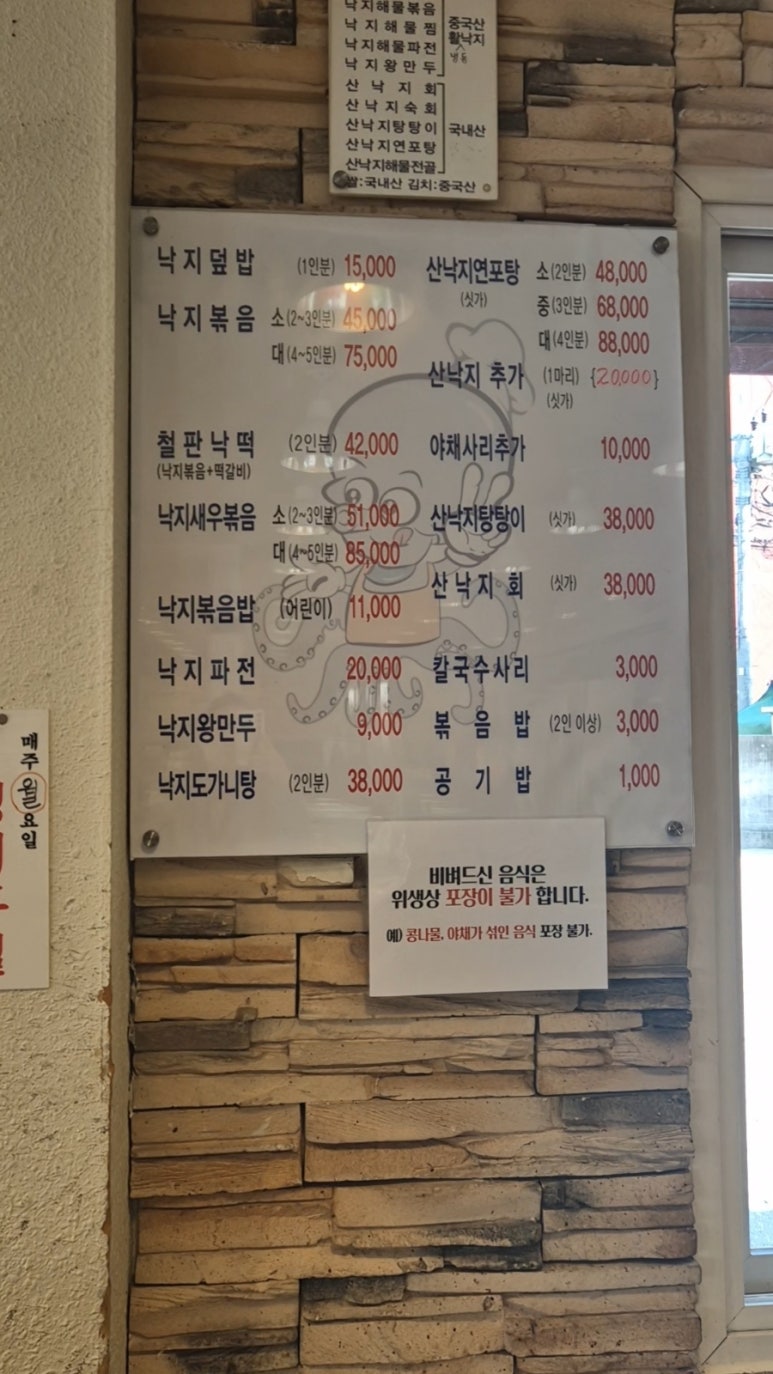 낙지해물볶음
낙지해물찜
낙지해물파전
낙지왕만두
중국산
활낙지
냉동
산낙지회
산낙지숙회
산낙지탕탕이
산낙지연포탕
산낙지해물전골
국내산
쌀:국내산 김치:중국산
낙지덮밥 (1인분) 15,000
낙지볶음 소(2~3인분) 45,000
대(4~5인분) 75,000
철판낙떡 (2인분) 42,000
(낙지볶음+떡갈비)
낙지새우볶음 소(2~3인분) 51,000
대(4~5인분) 85,000
낙지볶음밥 (어린이) 11,000
낙지파전 20,000
낙지왕만두 9,000
낙지도가니탕 (2인분) 38,000
산낙지연포탕 소(2인분) 48,000
(싯가)
중(3인분) 68,000
대(4인분) 88,000
산낙지 추가 (1마리) {20,000}
(싯가)
야채사리추가 10,000
산낙지탕탕이 (싯가) 38,000
산낙지회 (싯가) 38,000
칼국수사리 3,000
볶음밥 (2인 이상) 3,000
공기밥 1,000
비벼드신 음식은
위생상 포장이 불가 합니다.
예) 콩나물. 야채가 섞인 음식 포장 불가.
매주월요일